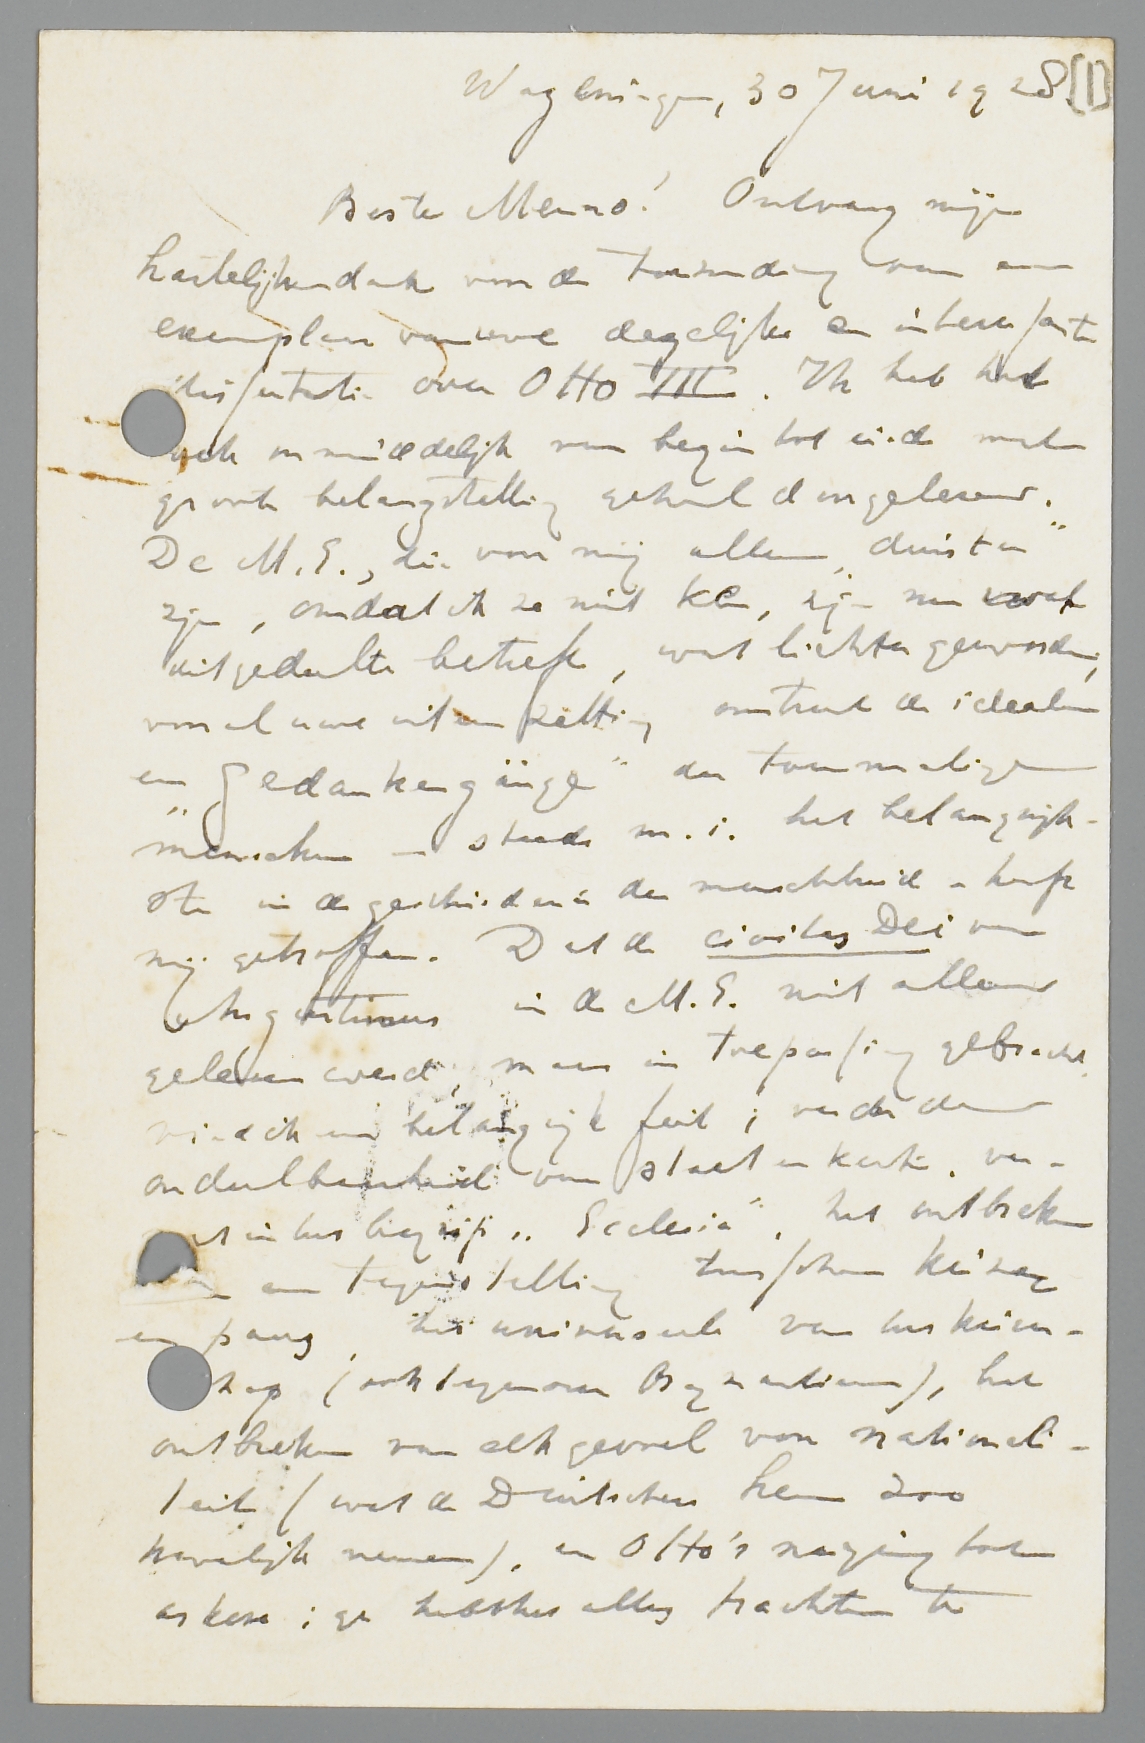 Wageningen, 30 Juni 1928 [1]
Beste Menno! Ontvang mijn
hartelijken dank voor de toezending van een
exemplaar van uwe degelijke en interessante
dissertatie over Otto III. Ik heb het
ook onmiddelijk van begin tot einde met
groote belangstelling geheel doorgelezen.
De M.E., die voor mij alleen „duister”
zijn, omdat ik ze niet ken, zijn nu wat
uitgedeelte betreft, wat lichter geworden,
vooral uwe uiteenzetting omtrent de idealen
en „Gedankengänge” der toenmalige
menschen – steeds m.i. het belangrijk-
ste in de geschiedenis der menschheid – heeft
mij getroffen. Dat de civitas Dei van
Augustinus in de M.E. niet alleen
gelezen werd, maar in toepassing gebracht,
vind ik een belangrijk feit; verder de
ondeelbaarheid van staat en kerk, ver-
in het begrip „Ecclesia”, het ontbreken
een tegenstelling tusschen keizer
en paus, het universeele van het keizer-
schap (ook tegenover Byzantium), het
ontbreken van elk gevoel voor nationali-
teit (wat de Duitschers hem zoo
kwalijk nemen), en Otto's neiging tot
askese; ge hebt het alles trachten te